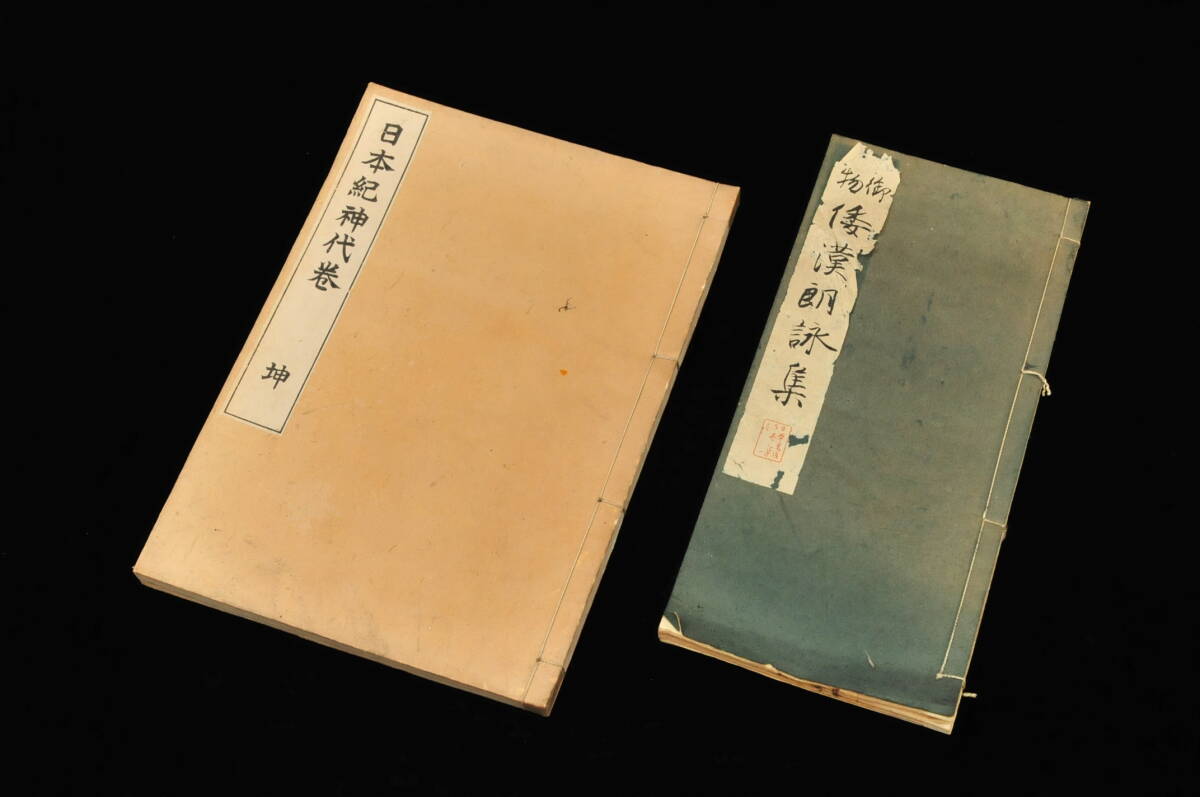 日本紀神代巻 坤
御物
倭漢朗詠集